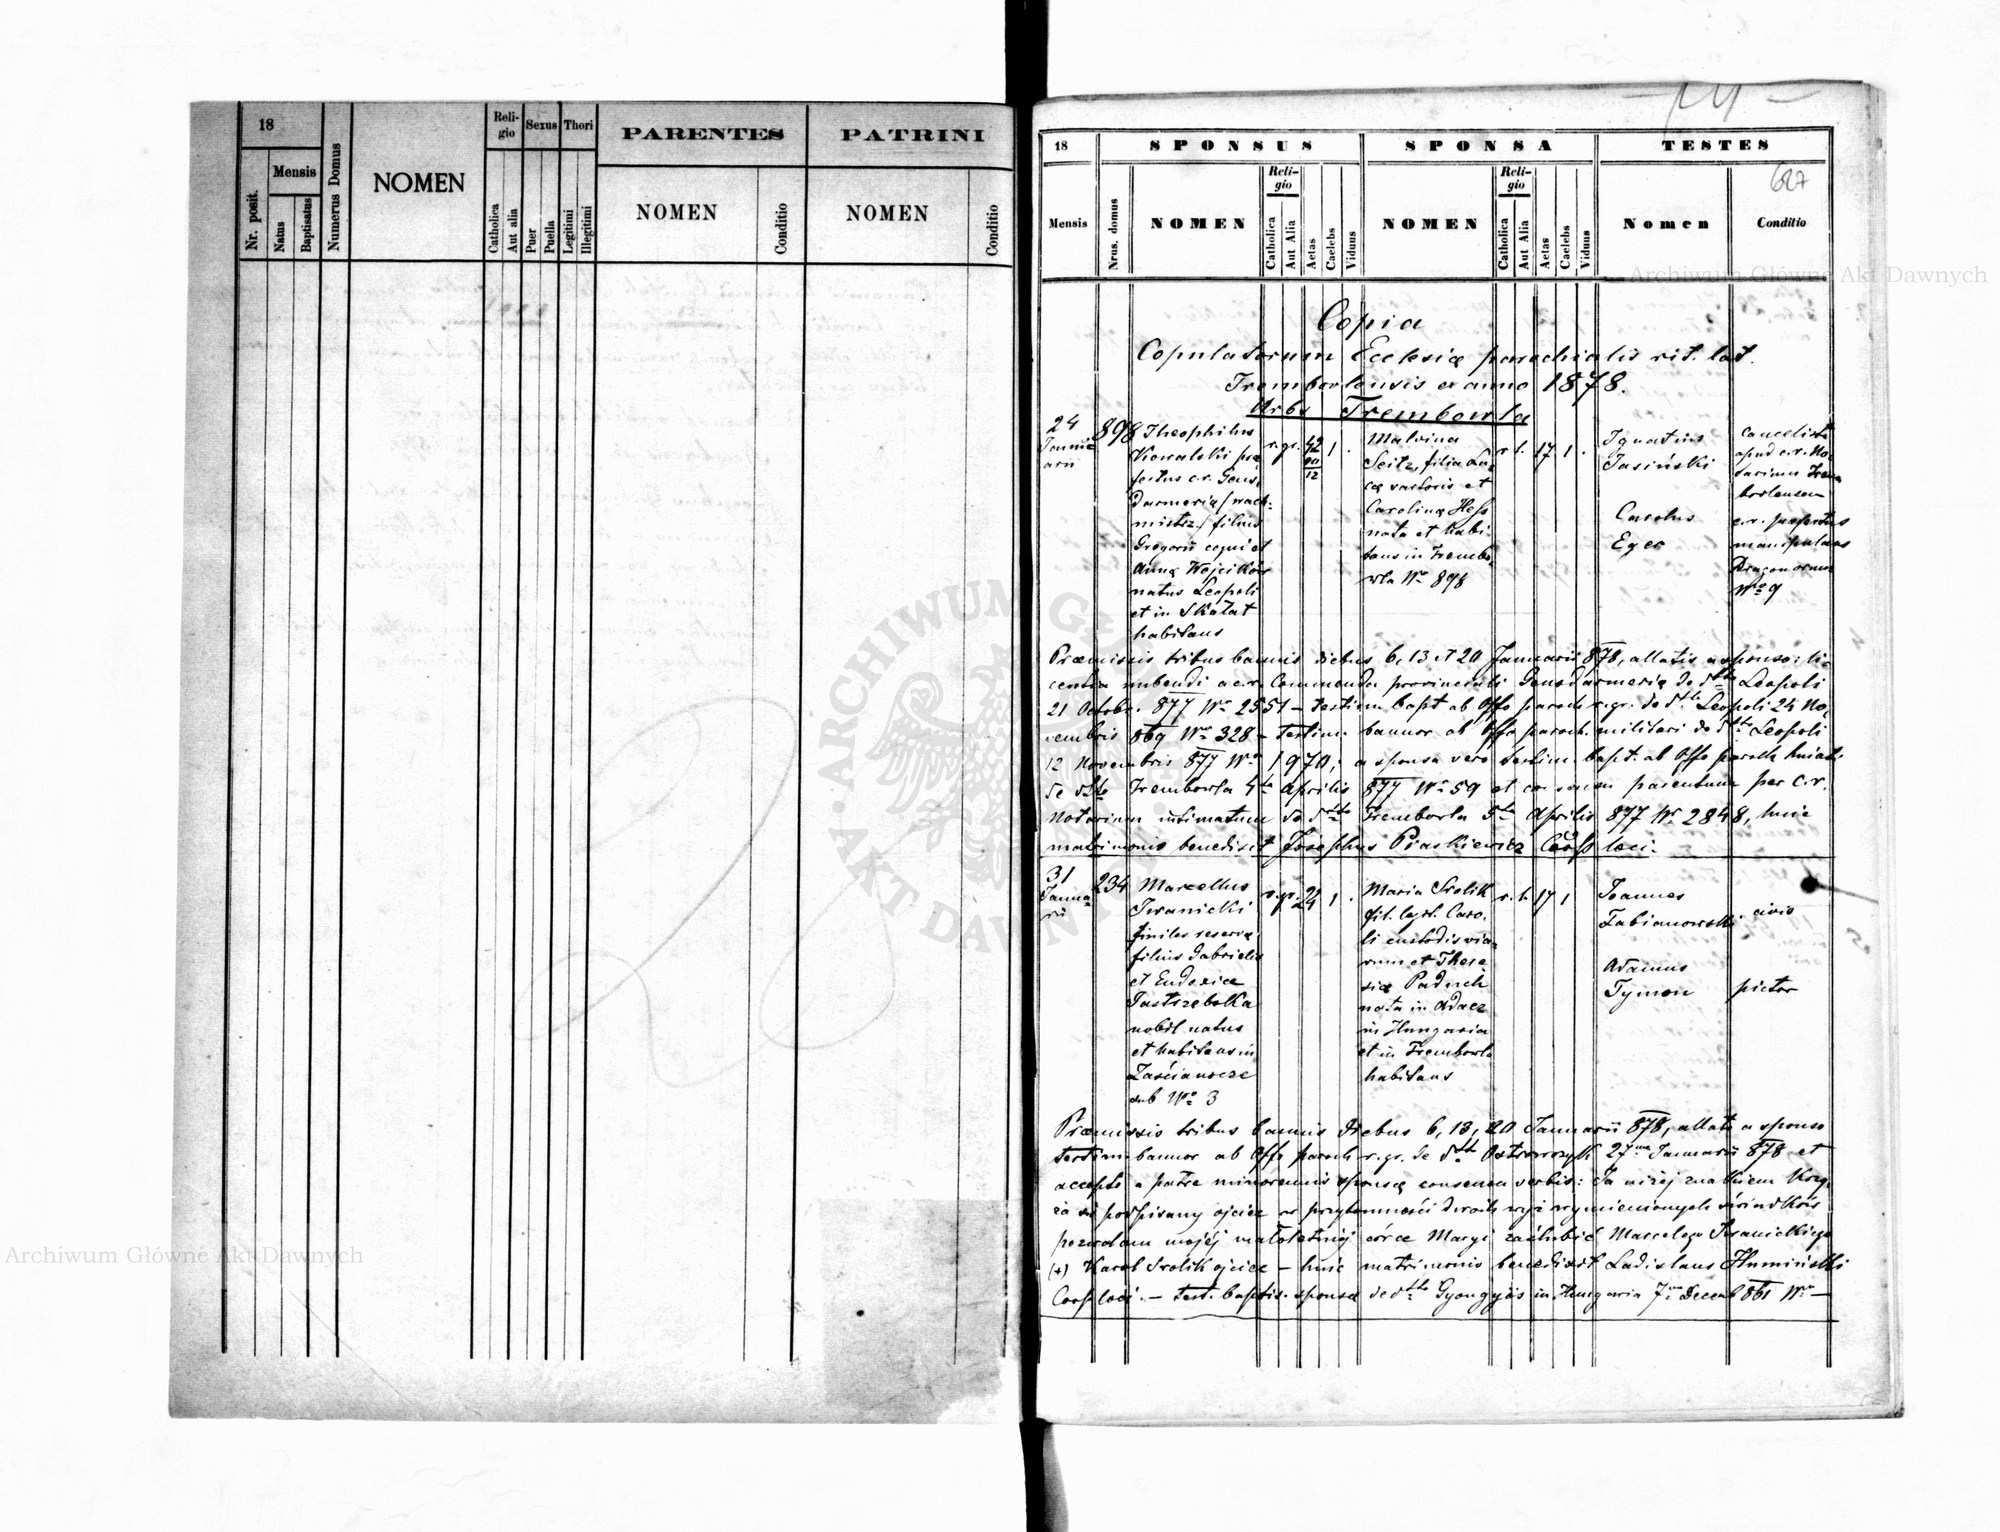 18
Mensis
Nr. posit.
Natus
Baptisatus
Numerus Domus
NOMEN
Reli-
gio
Catholica
Aut alia
Sexus
Puer
Puella
Thori
Legitimi
Illegitimi
PARENTES
NOMEN
Conditio
PATRINI
NOMEN
Conditio
18
SPONSUS
SPONSA
TESTES
627
Mensis
Nrus. domus
NOMEN
Reli-
gio
Catholica
Aut Alia
Aetas
Caelebs
Viduus
NOMEN
Reli-
gio
Catholica
Aut Alia
Aetas
Caelebs
Viduus
Nomen
Conditio
Copia
Copulatorum Ecclesiæ parochialis rit. lat.
Trembovlensis ex anno 1878.
Urbs Trembowla
24
Janu
arii
898
Theophilus
Kowalski præ
fectus c.r. Gens
darmeriæ /wach-
mistrz./ filius
Gregorii coqui et
Annæ Wojcików
natus Leopoli
et in Skałat
habitans
r. gr.
42
12
1
Malvina
Seitz, filia Lu
cæ sartoris et
Carolinæ Hess
nata et habi-
tans in Trembo
wla No 898
r. l.
17
1
Ignatius
Jasiński
cancelista
apud c.r. No-
tarium Trem
bovlensem
Carolus
Eger
c.r. præfectus
manipulans
Dragonorum
No 9
Præmissis tribus bannis diebus 6, 13 et 20 Januarii 878, allatis a sponso: li-
centia nubendi a c.r. Commenda provinciali Gensdarmeriæ de dtto Leopoli
21 Octobr. 877 No 2551 - testim. bapt ab Offo paroch r. gr. de dt. Leopoli 24 No-
vembris 869 No 328 - testim. bannor ab Offo paroch. militari de dtto Leopoli
12 Novembris 877 No 1970; a sponsa vero testim. bapt. ab Offo paroch huiati
de dtto Trembowla 4ta Aprilis 877 No 59 et consensu parentum per c.r.
Notarium intimatum de dtto Trembowla 5ta Aprilis 877 No 2848, huic
matrimonio benedixit Josephus Piaskiewicz Coop loci.
31
Janua-
rii
234
Marcellus
Iwanicki
miles reservæ
filius Gabrielis
et Eudoxiæ
Jastrzębska
nobil natus
et habitans in
Zaścianocze
sub No 3
r. gr.
24
1
Maria Srolik
fil. legit. Caro-
li custodis via-
rum et There
siæ Paduch
nata in Adacz
in Hungaria
et in Trembowla
habitans
r. l.
17
1
Joannes
Fabianowski
civis
Adamus
Tymon
pictor
Præmissis tribus bannis diebus 6, 13, 20 Januarii 878, allato a sponso
testim. bannor ab Offo paroch r. gr. de dtto Ostrowczyk 27ma Januarii 878 et
accepto a patre minorennis sponsæ consensu verbis: Ja niżej znakiem Krzy-
ża się podpisany ojciec w przytomności dwoch wyż wymienionych świadków
pozwalam mojéj małoletniéj córce Maryi zaślubić Marcelego Iwanickiego
(+) Karol Srolik ojciec - huic matrimonio benedixit Ladislaus Humiński
Coop loci. - Test. baptis. sponsæ de dtto Gyongyös in Hungaria 7ma Decemb 861 No -
Archiwum Główne Akt Dawnych
Archiwum Główne Akt Dawnych
ARCHIWUM GŁÓWNE AKT DAWNYCH